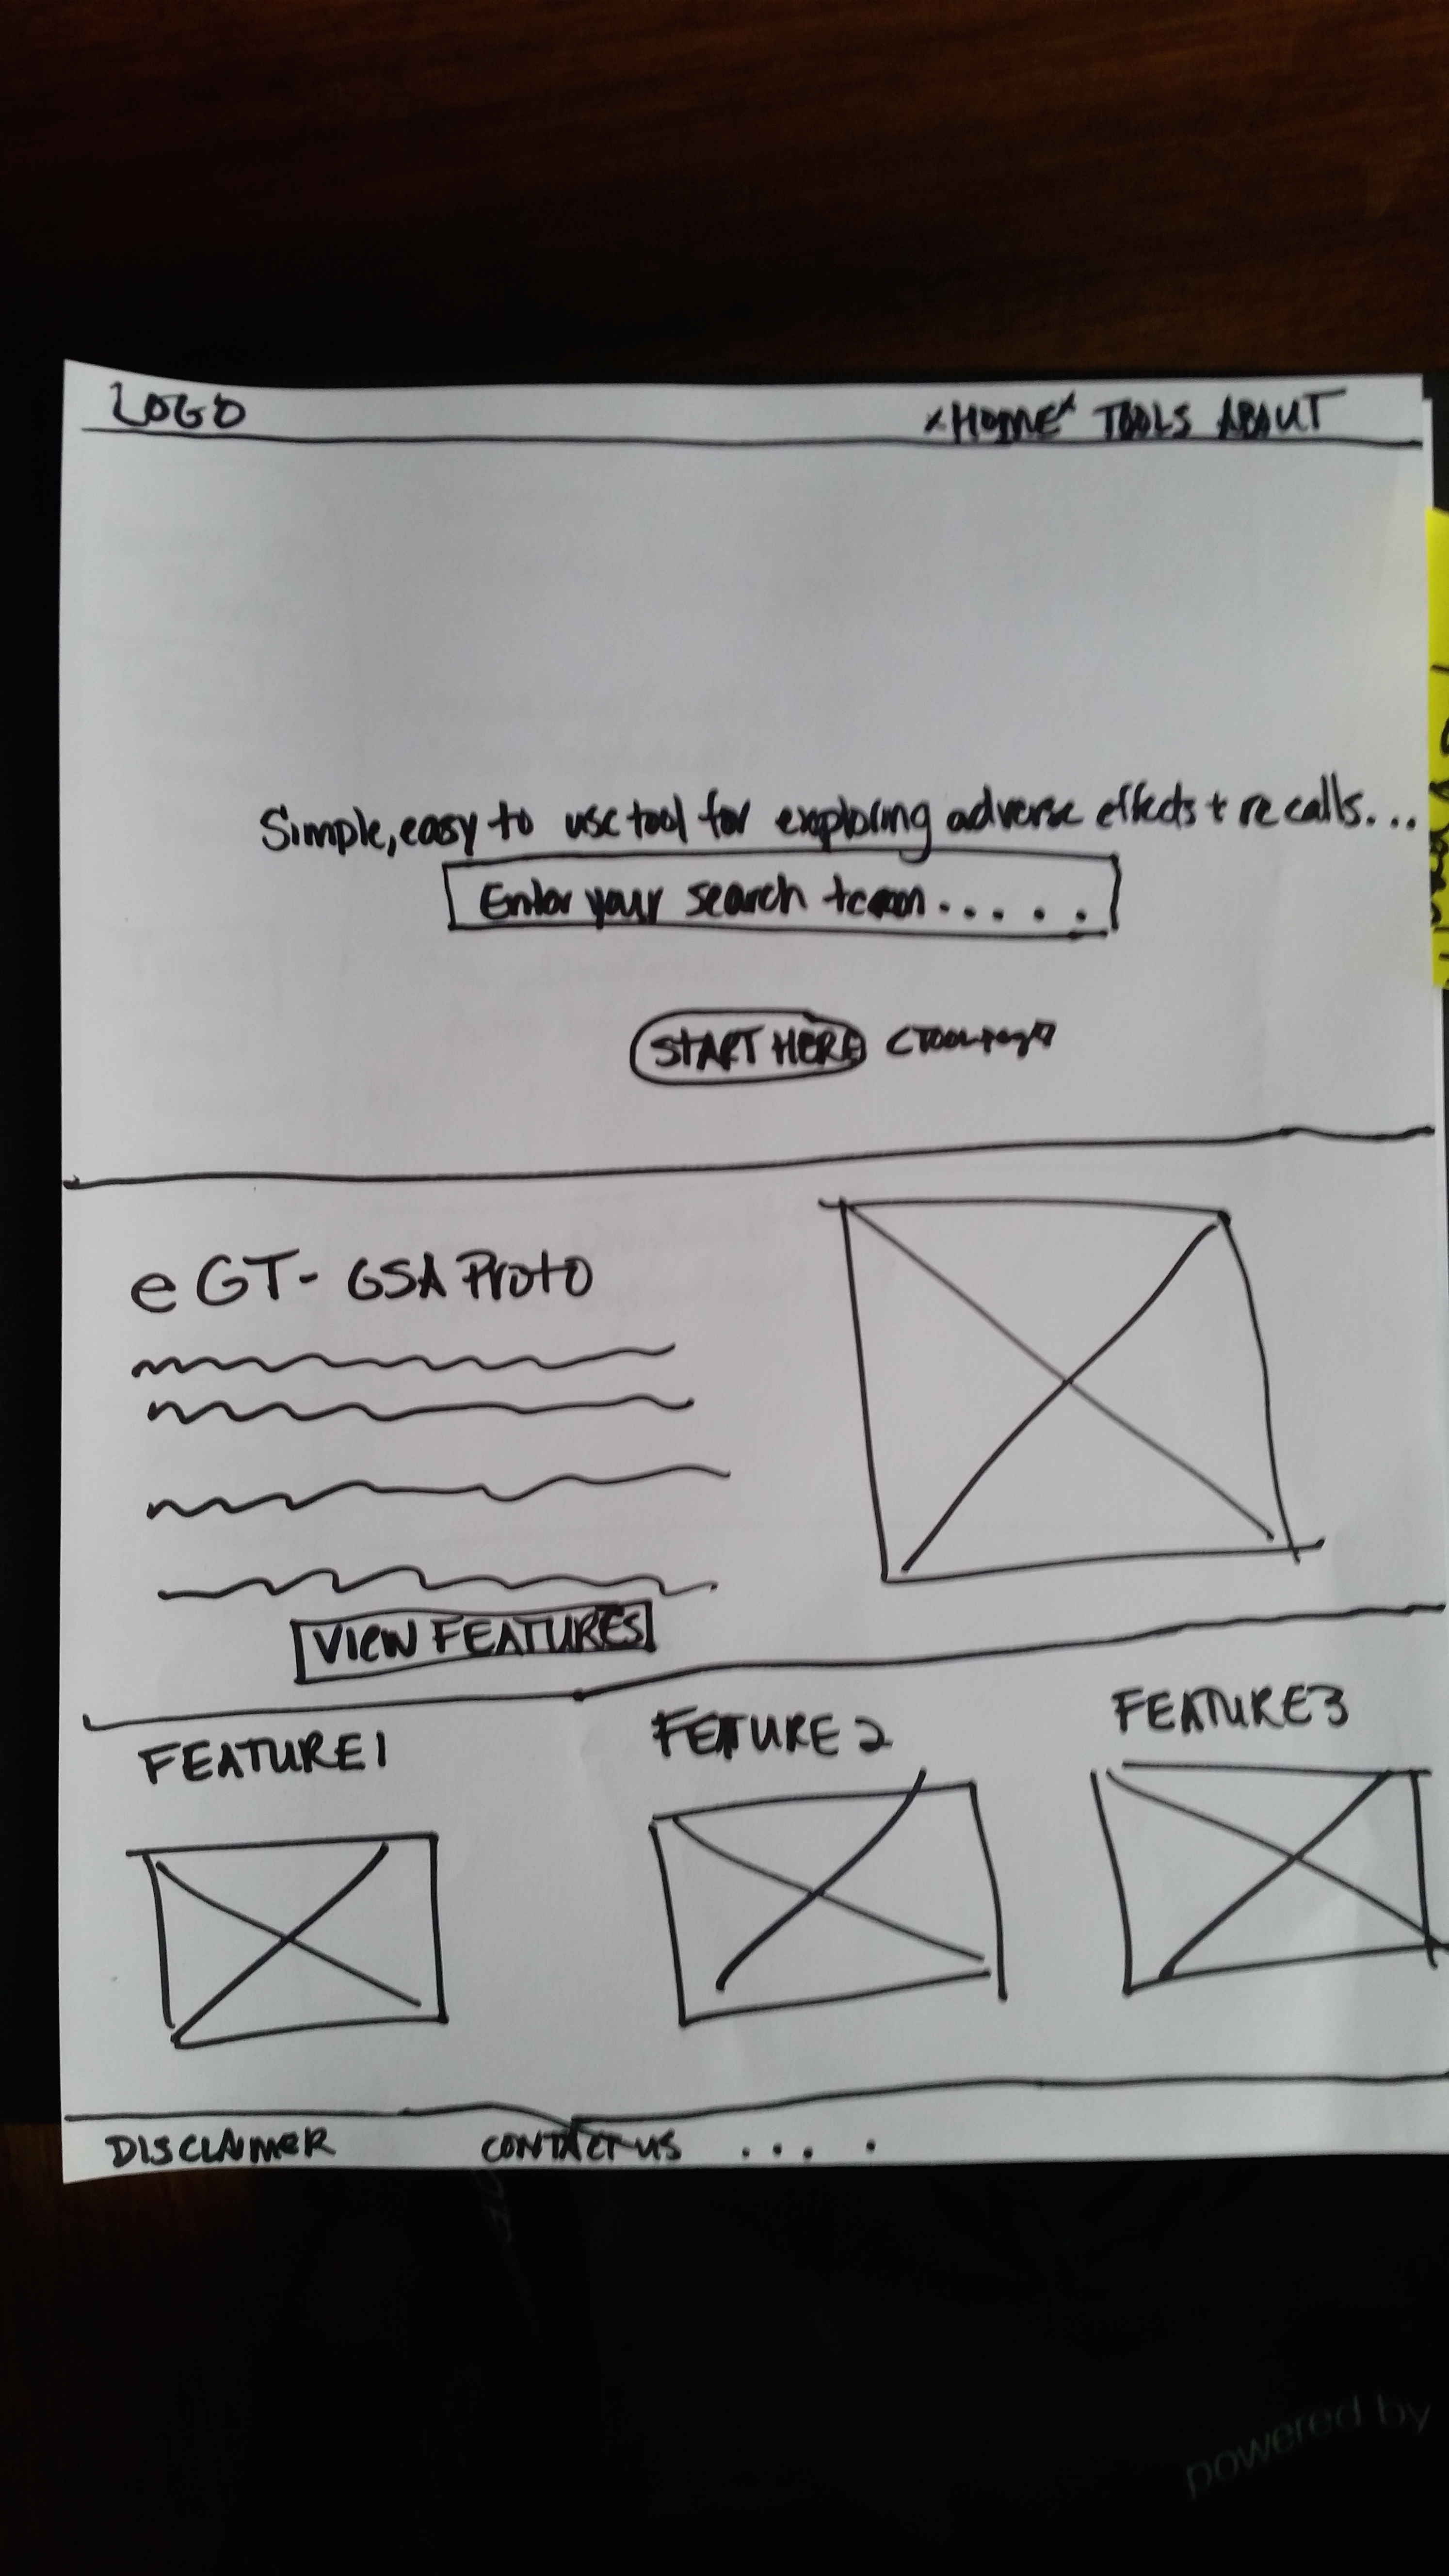 LOGO
"HOME" TOOLS ABOUT
Simple, easy to use tool for exploring adverse effects + recalls...
Enter your search term.....
START HERE
eGT- GSA Proto
VIEW FEATURES
FEATURE 1
FETURE 2
FEATURE 3
DISCLAIMER CONTACT US ....
powered by